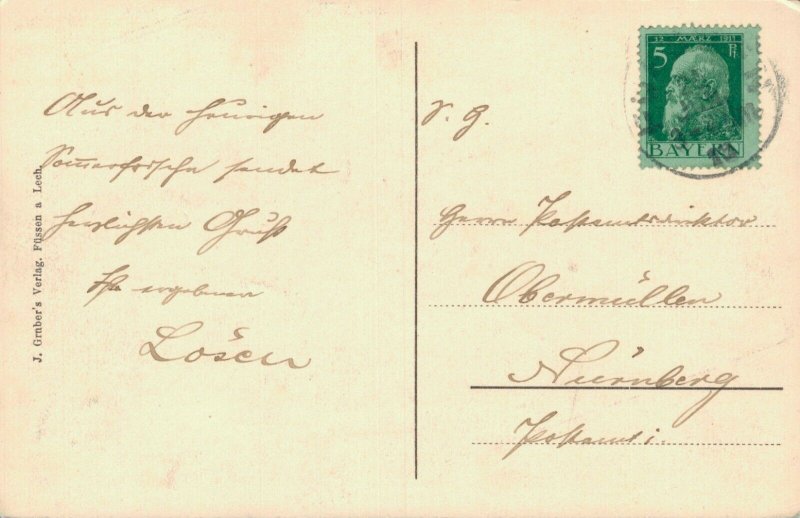 Aus der heurigen
Sommerfrische sendet
herzlichsten Gruß
Ihr ergebener
Lösen
J. Gruber's Verlag. Füssen a Lech.
S. H.
12 MÆRZ 1911
5 Pf.
BAYERN
Herrn Postamtsdirektor
Obermüller
Nürnberg
Postamt i.